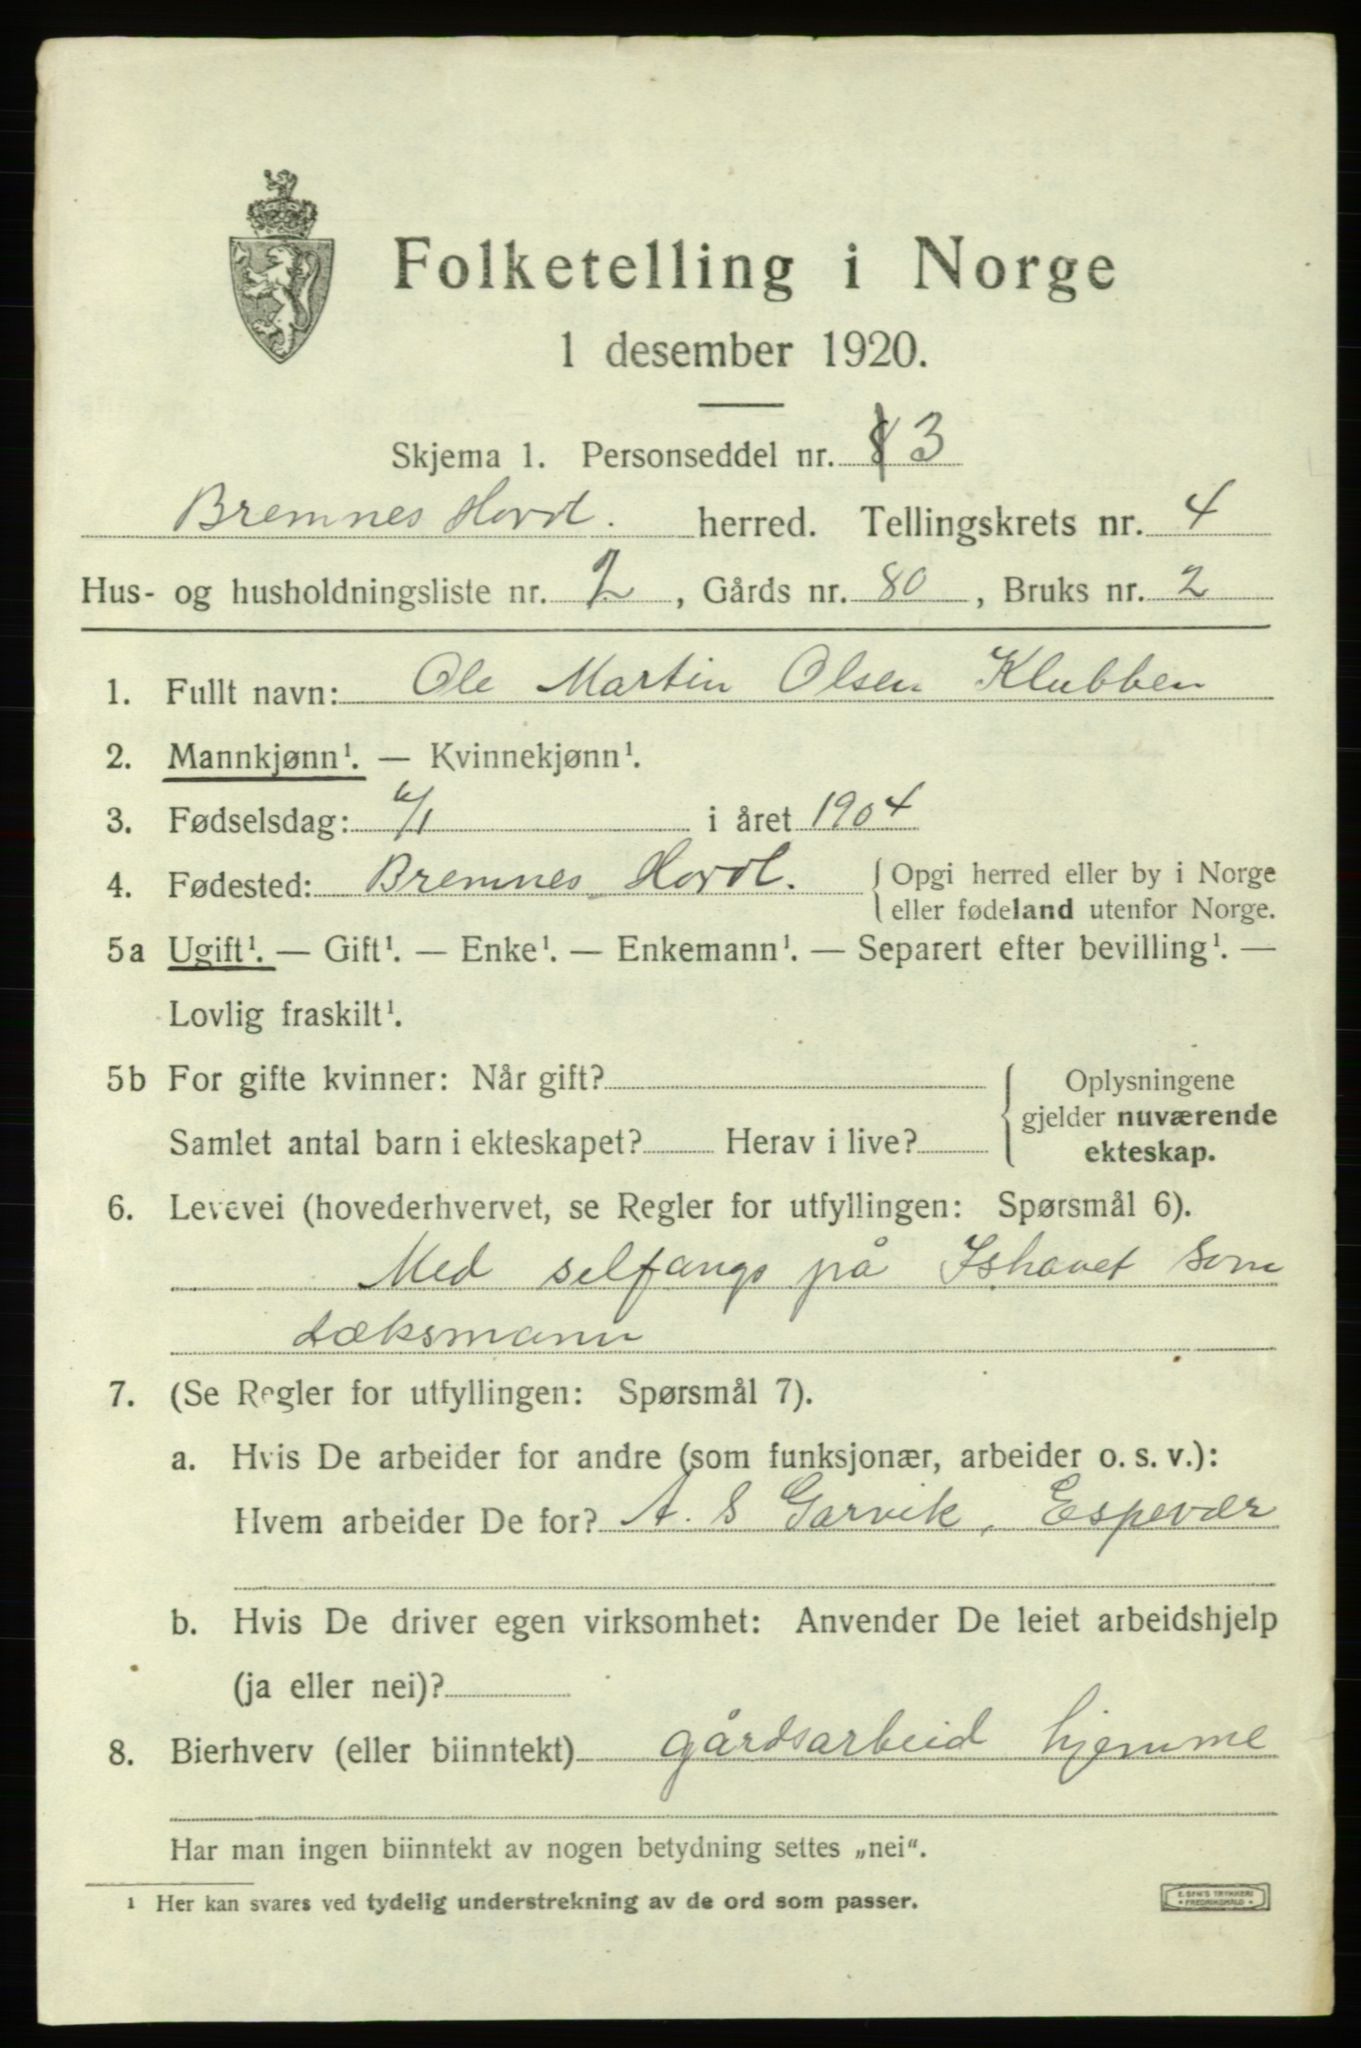 Folketelling i Norge
1 desember 1920.
Skjema 1. Personseddel nr. 3
Bremnes Hordl. herred. Tellingskrets nr. 4
Hus- og husholdningsliste nr. 2, Gårds nr. 80, Bruks nr. 2
1. Fullt navn: Ole Martin Olsen Klubben
2. Mannkjønn¹. — Kvinnekjønn¹.
3. Fødselsdag: 6/1 i året 1904
4. Fødested: Bremnes Hordl. {Opgi herred eller by i Norge
eller fødeland utenfor Norge.
5a Ugift¹. — Gift¹. — Enke¹. — Enkemann¹. — Separert efter bevilling¹. —
Lovlig fraskilt¹.
5b For gifte kvinner: Når gift? { Oplysningene
gjelder nuværende
Samlet antal barn i ekteskapet? Herav i live? ekteskap.
6. Levevei (hovederhvervet, se Regler for utfyllingen: Spørsmål 6).
Med selfangs på Ishavet som
dæksmann
7. (Se Regler for utfyllingen: Spørsmål 7).
a. Hvis De arbeider for andre (som funksjonær, arbeider o. s. v.):
Hvem arbeider De for? A. S Garvik, Espevær
b. Hvis De driver egen virksomhet: Anvender De leiet arbeidshjelp
(ja eller nei)?
8. Bierhverv (eller biinntekt) gårdsarbeid hjemme
Har man ingen biinntekt av nogen betydning settes „nei“.
¹ Her kan svares ved tydelig understrekning av de ord som passer.